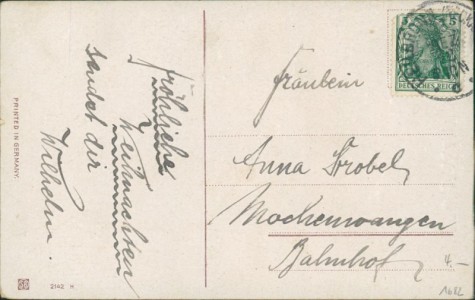 fröhliche
Weihnachten
sendet dir
Wilhelm.
PRINTED IN GERMANY.
2142 H
DEUTSCHES REICH
Fräulein
Anna Strobel
Mochenwangen
Bahnhof
4.-
1682